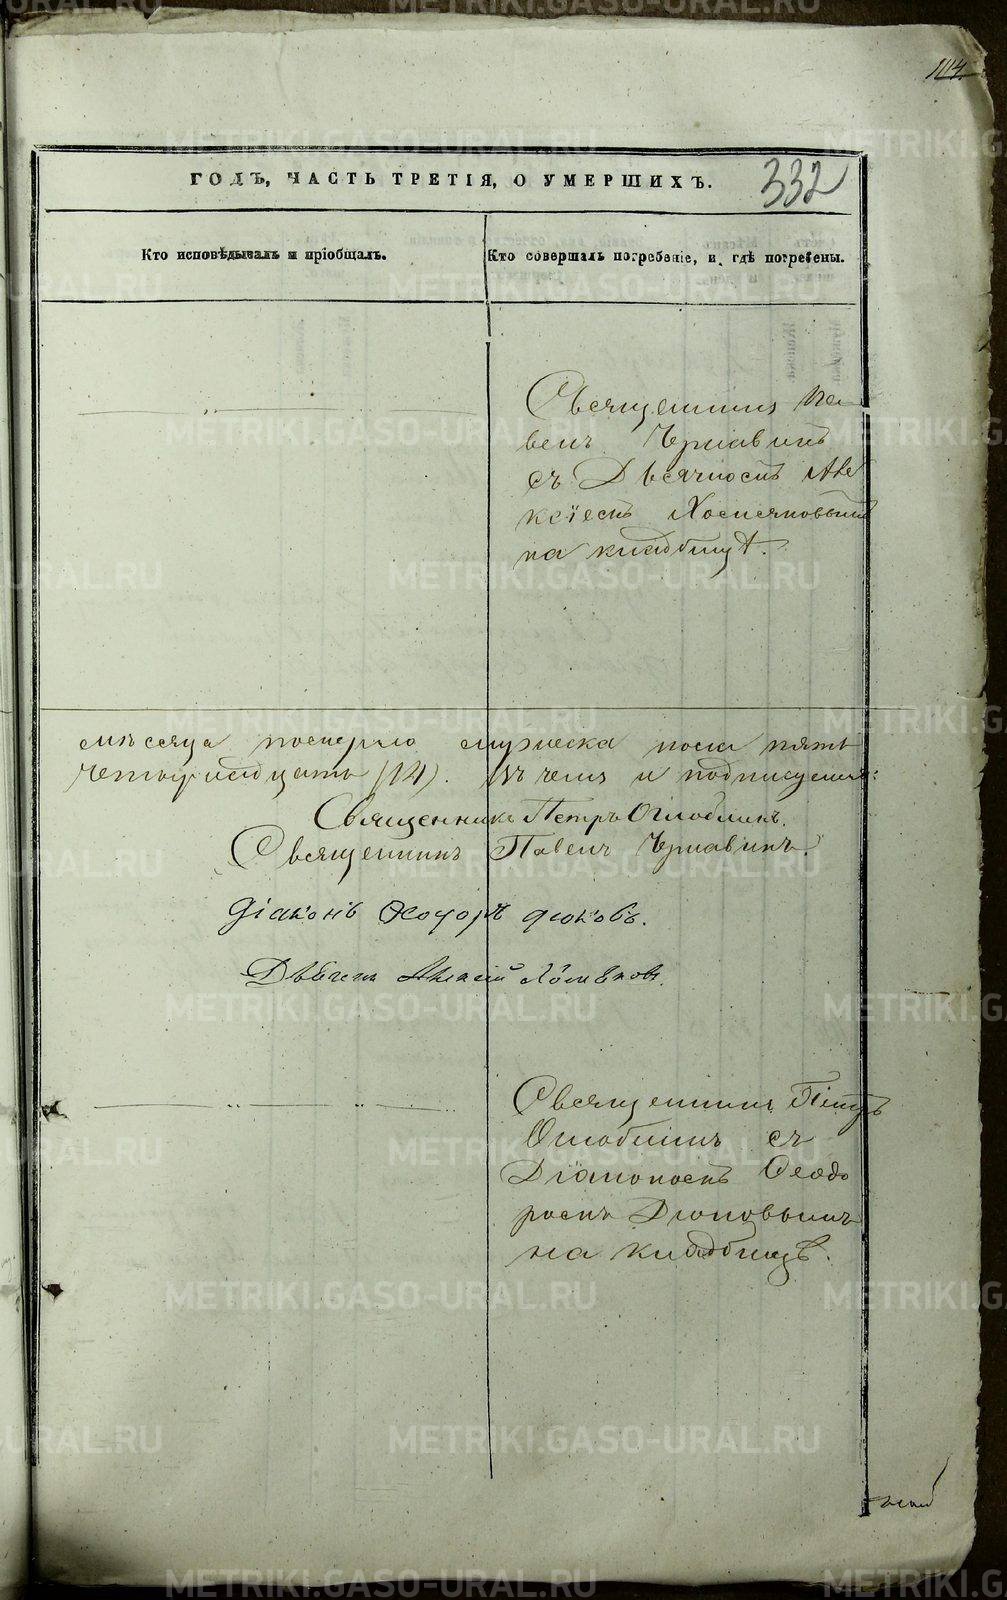 114.
332
ГОДЪ, ЧАСТЬ ТРЕТІЯ, О УМЕРШИХЪ.
Кто исповѣдывалъ и пріобщалъ.
Кто совершалъ погребеніе, и гдѣ погребены.
Священникъ Па
велъ Чернавинъ
съ Дьячкомъ Але
ксіемъ Хомяковымъ
на кладбищѣ.
мѣсяца померло мужеска пола пять
четырнадцать (14). Въ чемъ и подписуемся:
Священникъ Петръ Оглоблинъ.
Священникъ Павелъ Чернавинъ.
Діаконъ Ѳеодоръ
Дьячекъ Алексій Хомяковъ.
Священникъ Петръ
Оглоблинъ съ
Діакономъ Ѳеодо
ромъ
на кладбищѣ.
METRIKI.GASO-URAL.RU